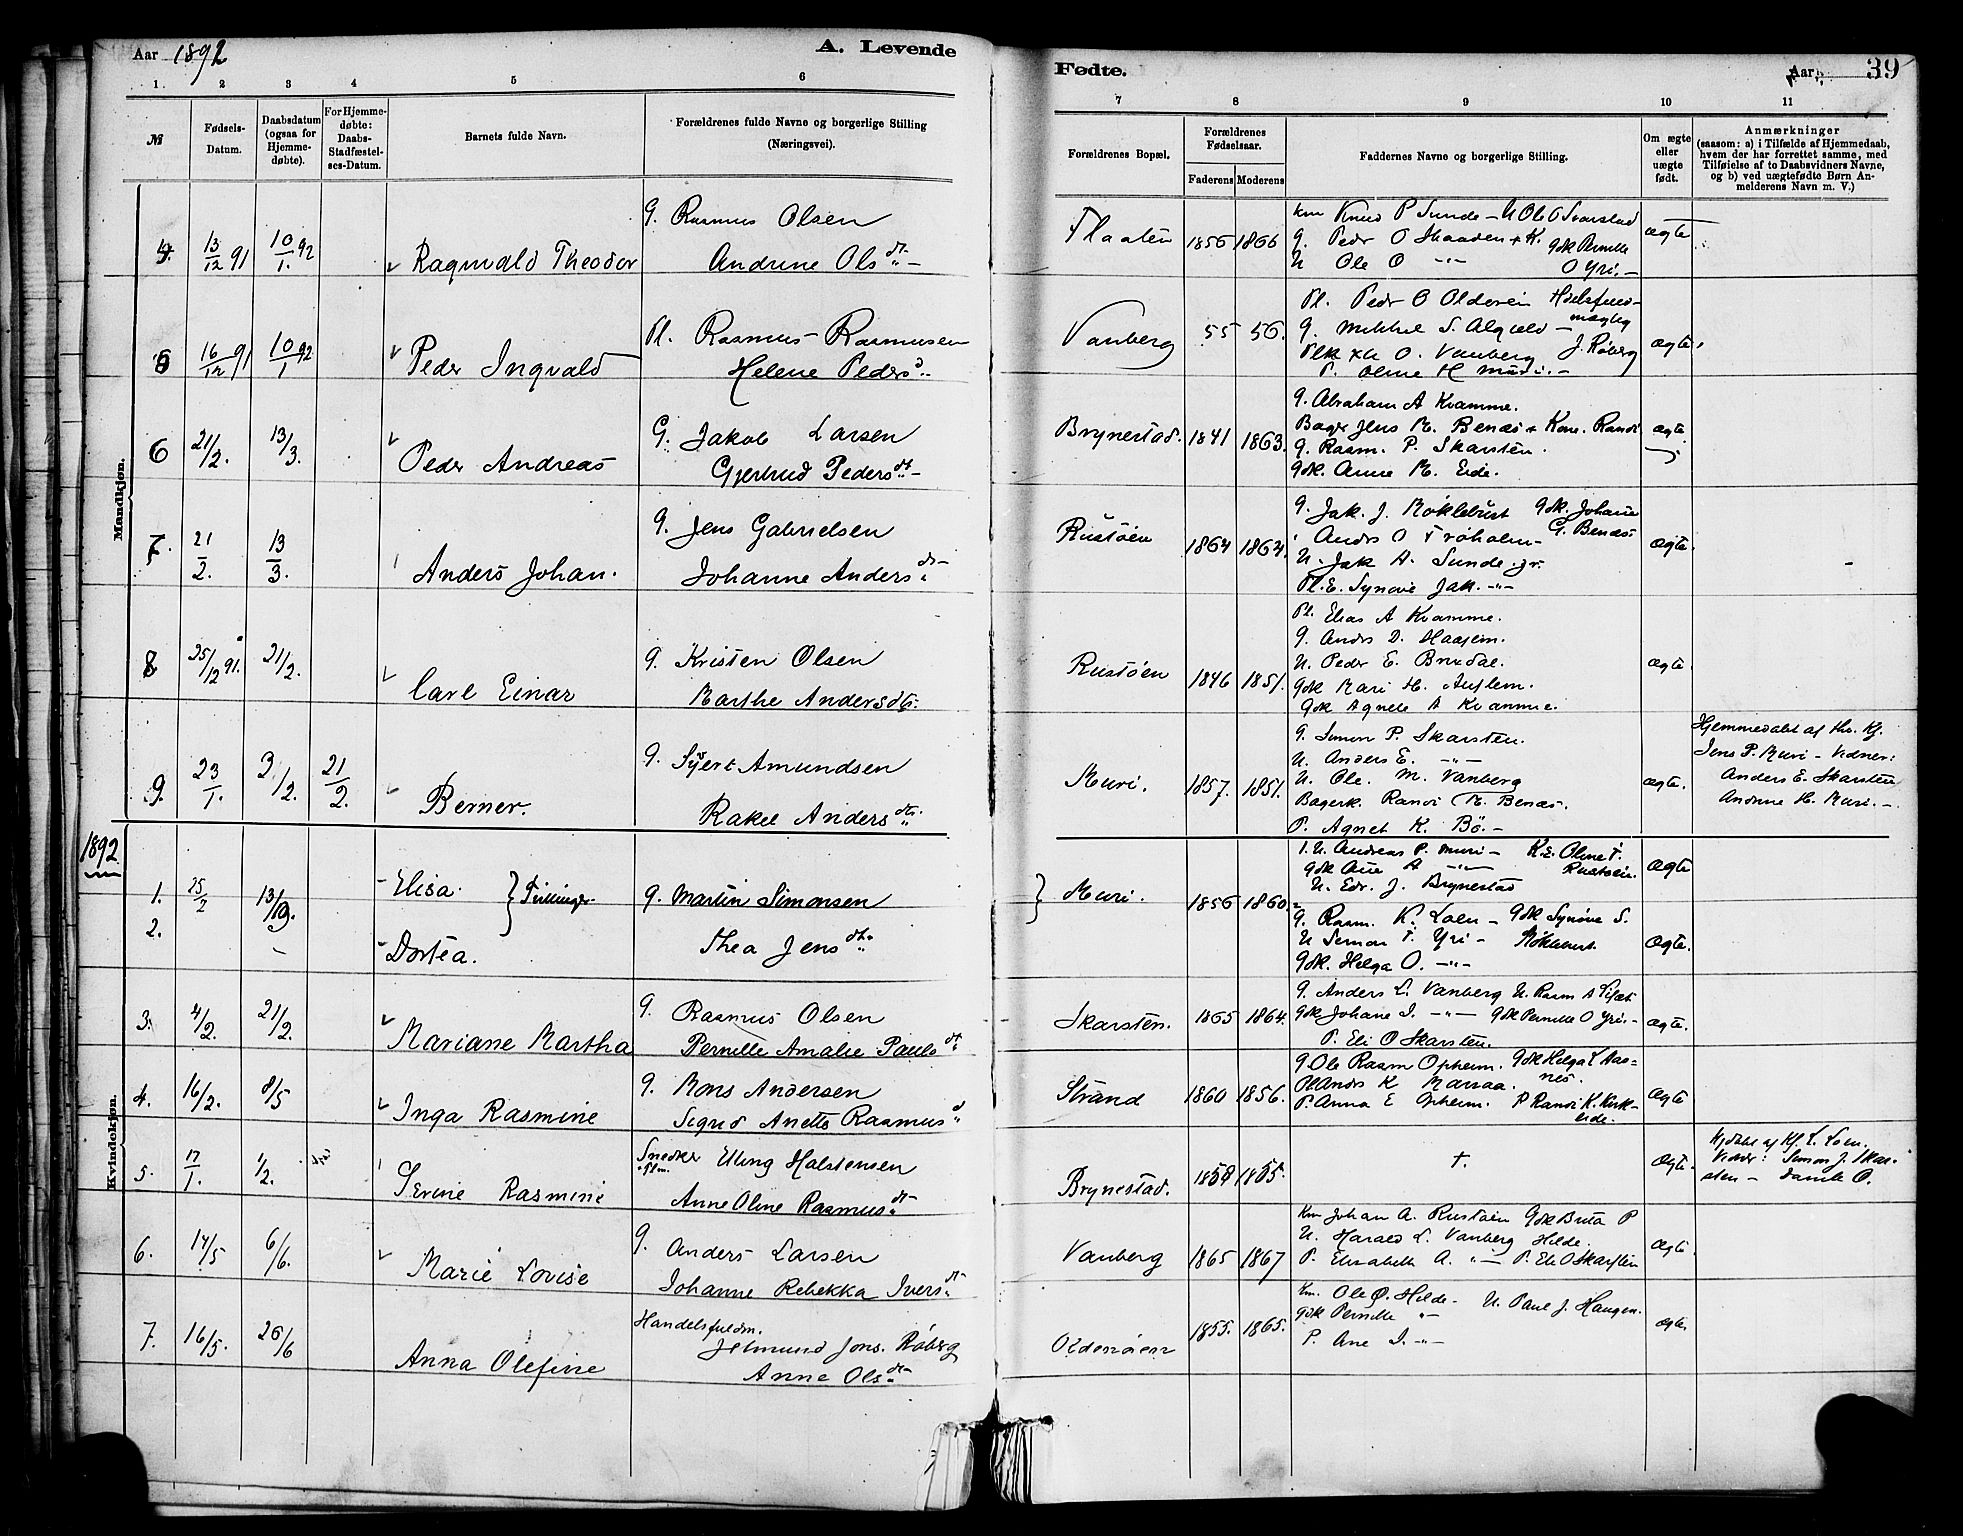 Aar 1892
A. Levende
Fødte.
Aar
39
1. 2 3 4 5 6
7 8 9 10 11
№
Fødsels-Datum.
Daabsdatum (ogsaa for Hjemmedøbte).
For Hjemmedøbte: Daabs-Stadfæstelses-Datum.
Barnets fulde Navn.
Forældrenes fulde Navne og borgerlige Stilling (Næringsvei).
Forældrenes Bopæl.
Forældrenes Fødselsaar.
Faderens Moderens
Faddernes Navne og borgerlige Stilling.
Om ægte eller uægte født.
Anmærkninger
(saasom: a) i Tilfælde af Hjemmedaab, hvem der har forrettet samme, med Tilføielse af to Daabsvidners Navne, og b) ved uægtefødte Børn Anmelderens Navn m. V.)
Mandkjøn.
13/12 91 10/1. 92 Ragnvald Theodor
G. Rasmus Olsen
Andrine Olsdt.
Flaaten 1856 1866
Km Knud P Sunde - U Ole O Svarstad
G. Peder O Skaaden + K. Gdk Pernille
U Ole O -"- O Yri. -
ægte
6 16/12 91 10/1 92 Peder Ingvald
Pl. Rasmus Rasmusen
Helene Pedersd.
Vanberg 55 56.
Pl. Peder O Olderein
G. Mikkel S. Alqvæld -
O. Vanberg J. Røberg
P. Oline H Muri. -
ægte
6 21/2. 13/3. Peder Andreas
G. Jakob Larsen
Gjertrud Pedersdt.
Brynestad. 1841 1863.
G. Abraham A Kvamme.
Bager Jens M. Benæs + Kone Randi
G. Rasm. P. Skarsten.
Gdk. Anne M. Eide.
ægte
7. 21/2. 13/3. Anders Johan.
G. Jens Gabrielsen
Johanne Andersdt.
Rustøen 1864 1864.
G. Jak. J. Møklebust Gdk. Johane
Andrs O Trøholm - G. Benæs
U. Jak A. Sunde jr.
Pl. E. Synøve Jak. -"-
ægte.
8 25/12 91. 21/2. Carl Einar
G. Kristen Olsen
Marthe Andersdt.
Rustøen 1846 1851.
Pl. Elias A Kvamme.
G. Andrs D. Haagem.
U. Peder E. Brudal.
Gdk Mari H. Auflem.
Gdk Agnete A Kvamme.
ægte.
9. 23/1. 2/2. 21/2. Berner.
G. Sjert Amundsen
Rakel Andersdt.
Muri. 1857. 1851.
G. Simon P. Skarsten.
U. Anders E. -"-
U. Ole. M. Vanberg
Bagerk. Randi M. Benæs.
P. Agnet K. Bö. -
ægte.
Hjemmedøbt af Ks. Kj.
Jens P. Muri - Vidner:
Anders E. Skarsten
Andrine H. Muri. -
1892
Kvindekjøn.
1. 25/2 13/3 Elisa. } Tvillinger.
2. - Dortea.
G. Martin Simonsen
Thea Jensdt.
Muri. 1856 1860.
1. U. Andreas P. Muri - K.E. Oline T.
Gdk Ane A -"- Rustøen.
U. Edr. J. Brynestad
ægte
G. Rasm. K. Loen - Gdk Synøve S.
U Simon T. Yri - Møklebust
Gdk. Helga O. -"-
ægte.
3. 4/2. 21/2. Mariane Martha
G. Rasmus Olsen
Pernille Amalie Paulsdt.
Skarsten. 1865 1864.
G. Anders L. Vanberg U. Rasm A
Gdk Johane I. -"- Gdk Pernille O Yri. -
P. Eli O Skarsten.
ægte.
4. 16/2. 8/5 Inga Rasmine
G. Mons Andersen
Sigrid Anette Rasmusd.
Strand 1860 1856.
G Ole Rasm Opheim. Gdk Helga L Aasnes.
Andr K Marsaa.
P. Anna E Opheim. P Randi K. Kirkeide.
ægte
5. 17/1. 1/2. Serine Rasmine
Snedker Elling Halstensen
Anne Oline Rasmusdt.
Brynestad. 1858 1855.
†.
ægte.
Hjdøbt af Kj. L. Loen.
Vidner: Simon J. Skarsten - Daniel O.
6. 14/5 6/6. Marie Lovise
G. Anders Larsen
Johanne Rebekka Iversdt.
Vanberg 1865 1867
Km Johan A. Rustøen Gdk Brita P
U. Harald L. Vanberg Hilde.
P. Elisabeth A. -"- P. Eli O Skarsten
ægte
7. 16/5. 26/6 Anna Olefine
Handelsfuldm.
Jetmund Jons. Røberg
Anne Olsdt.
Oldenøien 1855. 1865.
Km. Ole Ø. Hilde - U. Paul J. Haugen.
Gdk Pernille -"-
P. Ane I. -"-
ægte.